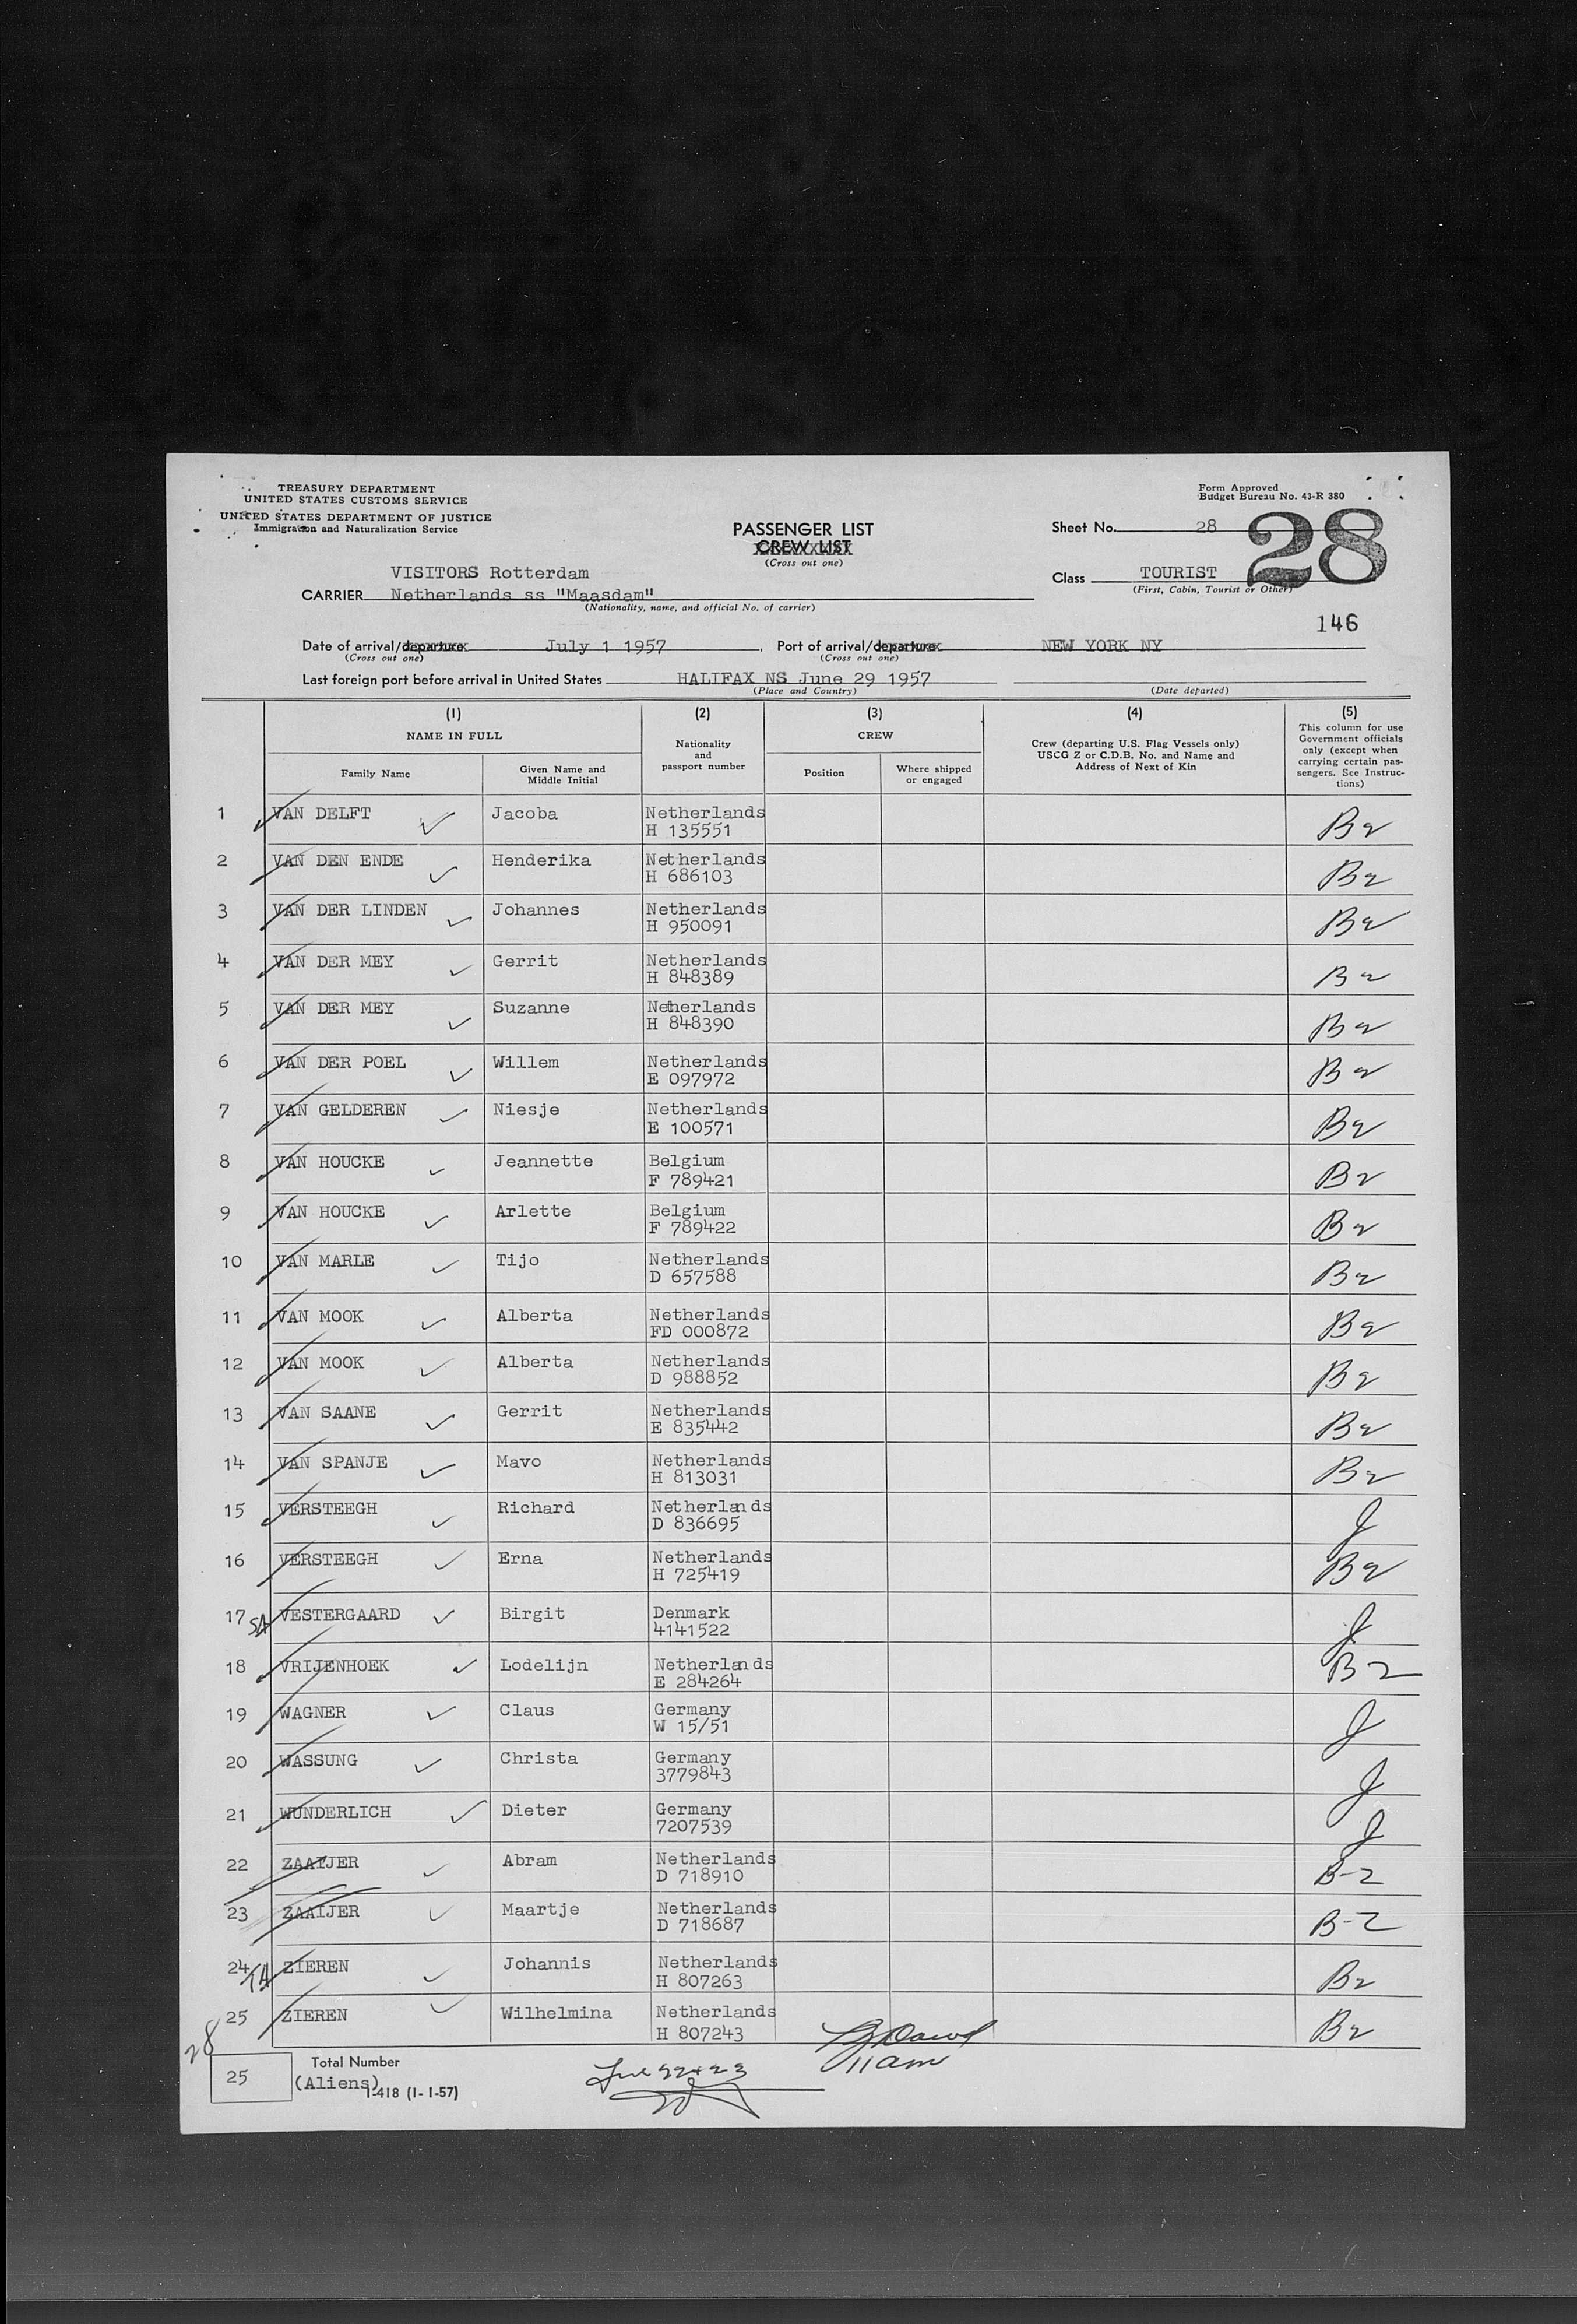 TREASURY DEPARTMENT
UNITED STATES CUSTOMS SERVICE
UNITED STATES DEPARTMENT OF JUSTICE
Immigration and Naturalization Service
Form Approved
Budget Bureau No. 43-R 380
PASSENGER LIST
CREW LIST
(Cross out one)
Sheet No. 28
28
VISITORS Rotterdam
CARRIER Netherlands ss "Maasdam"
(Nationality, name, and official No. of carrier)
Class TOURIST
(First, Cabin, Tourist or Other)
146
Date of arrival/departure July 1 1957, Port of arrival/departure NEW YORK NY
(Cross out one) (Cross out one)
Last foreign port before arrival in United States HALIFAX NS June 29 1957
(Place and Country) (Date departed)
(1) (2) (3) (4) (5)
NAME IN FULL
Family Name
Given Name and
Middle Initial
Nationality
and
passport number
CREW
Position
Where shipped
or engaged
Crew (departing U.S. Flag Vessels only)
USCG Z or C.D.B. No. and Name and
Address of Next of Kin
This column for use
Government officials
only (except when
carrying certain pas-
sengers. See Instruc-
tions)
1 VAN DELFT Jacoba Netherlands
H 135551 B2
2 VAN DEN ENDE Henderika Netherlands
H 686103 B2
3 VAN DER LINDEN Johannes Netherlands
H 950091 B2
4 VAN DER MEY Gerrit Netherlands
H 848389 B2
5 VAN DER MEY Suzanne Netherlands
H 848390 B2
6 VAN DER POEL Willem Netherlands
E 097972 B2
7 VAN GELDEREN Niesje Netherlands
E 100571 B2
8 VAN HOUCKE Jeannette Belgium
F 789421 B2
9 VAN HOUCKE Arlette Belgium
F 789422 B2
10 VAN MARLE Tijo Netherlands
D 657588 B2
11 VAN MOOK Alberta Netherlands
FD 000872 B2
12 VAN MOOK Alberta Netherlands
D 988852 B2
13 VAN SAANE Gerrit Netherlands
E 835442 B2
14 VAN SPANJE Mavo Netherlands
H 813031 B2
15 VERSTEEGH Richard Netherlands
D 836695 J
16 VERSTEEGH Erna Netherlands
H 725419 B2
17 VESTERGAARD Birgit Denmark
4141522 J
18 VRIJENHOEK Lodelijn Netherlands
E 284264 B-2
19 WAGNER Claus Germany
W 15/51 J
20 WASSUNG Christa Germany
3779843 J
21 WUNDERLICH Dieter Germany
7207539 J
22 ZAAIJER Abram Netherlands
D 718910 B-2
23 ZAAIJER Maartje Netherlands
D 718687 B-2
24 ZIEREN Johannis Netherlands
H 807263 B2
25 ZIEREN Wilhelmina Netherlands
H 807243 B2
28
25 Total Number
(Aliens)
I-418 (1-1-57)
11am
22+23